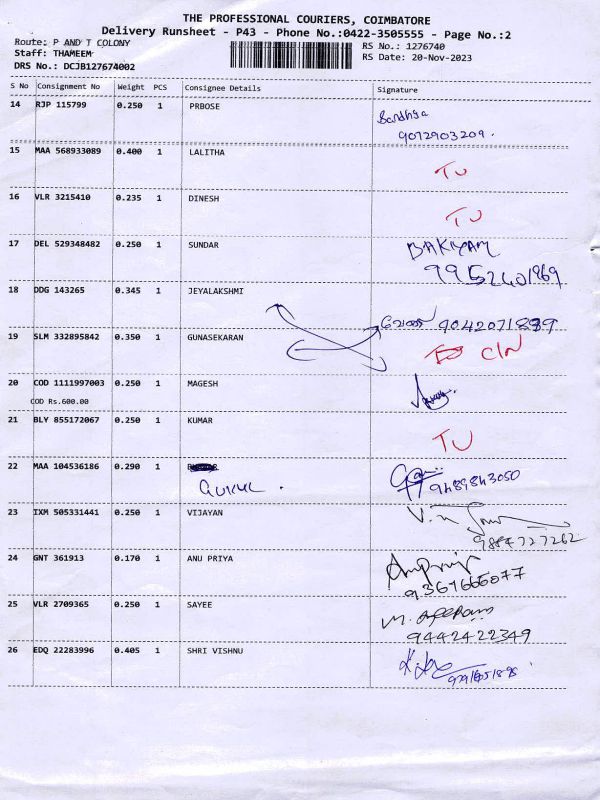 THE PROFESSIONAL COURIERS, COIMBATORE
Delivery Runsheet - P43 - Phone No.:0422-3505555 - Page No.:2
Route: P AND T COLONY
Staff: THAMEEM
DRS No.: DCJB127674002
RS No.: 1276740
RS Date: 20-Nov-2023
S No Consignment No Weight PCS Consignee Details Signature
14 RJP 115799 0.250 1 PRBOSE
9072903209.
15 MAA 568933089 0.400 1 LALITHA TU
16 VLR 3215410 0.235 1 DINESH TU
17 DEL 529348482 0.250 1 SUNDAR BAKIYAM
9952401969
18 DDG 143265 0.345 1 JEYALAKSHMI
19 SLM 332895842 0.350 1 GUNASEKARAN C/N
20 COD 1111997003 0.250 1 MAGESH
COD Rs.600.00
21 BLY 855172067 0.250 1 KUMAR TU
22 MAA 104536186 0.290 1
GUKUL . 9489843050
23 IXM 505331441 0.250 1 VIJAYAN
9884727262
24 GNT 361913 0.170 1 ANU PRIYA
9367666077
25 VLR 2709365 0.250 1 SAYEE
9442422349
26 EDQ 22283996 0.405 1 SHRI VISHNU